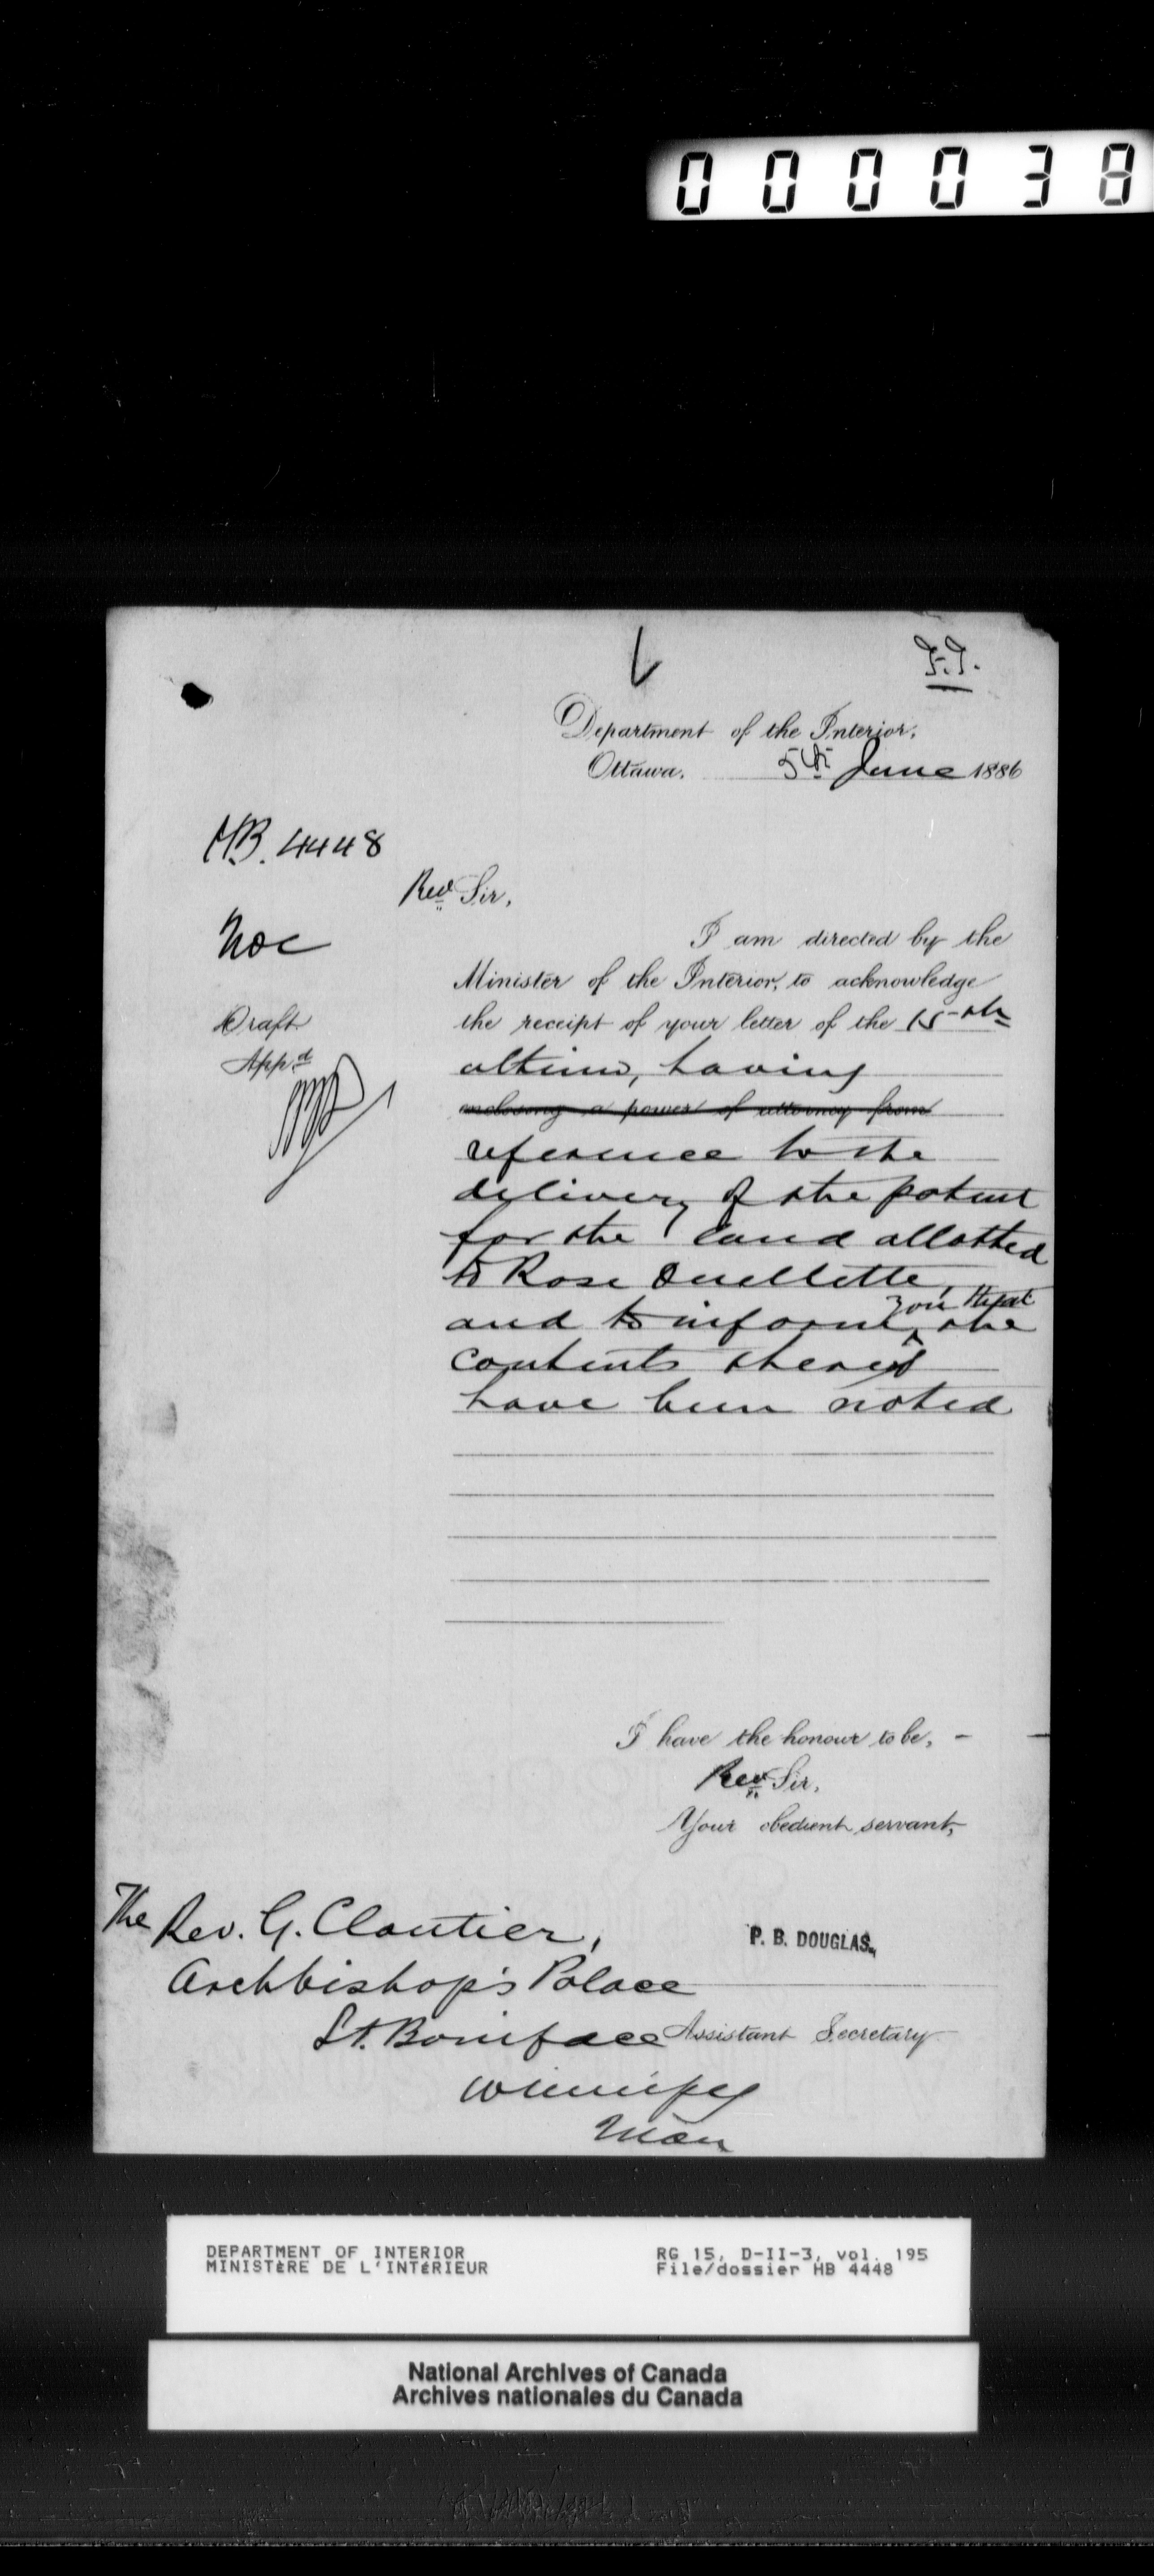 000038
Department of the Interior,
Ottawa, 5th June 1886
H.B. 4448
Revd Sir,
I am directed by the
Minister of the Interior, to acknowledge
the receipt of your letter of the 15th
Draft
Appd
ultimo, having
enclosing a power of attorney from
reference to the
delivery of the patent
for the land allotted
to Rose Ouellette,
you that
and to inform ^ the
contents thereof
have been noted
I have the honour to be,
Revd Sir,
Your obedient servant,
The Rev. G. Cloutier,
P. B. DOUGLAS.
Archbishop's Palace
St. Boniface
Assistant Secretary
Winnipeg
Man
DEPARTMENT OF INTERIOR
MINISTÈRE DE L'INTÉRIEUR
RG 15, D-II-3, vol. 195
File/dossier HB 4448
National Archives of Canada
Archives nationales du Canada